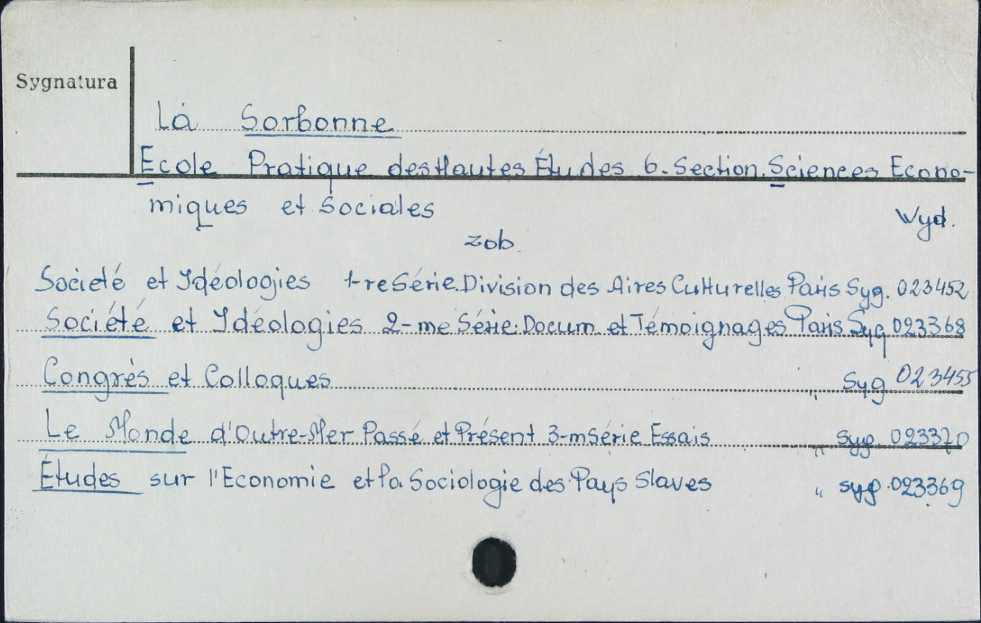 Sygnatura
La Sorbonne
Ecole Pratique des Hautes Études 6. Section. Sciences Econo-
miques et Sociales
Wyd.
zob.
Societé et Idéologies 1-re Série. Division des Aires Culturelles Paris Syg. 023452
Société et Idéologies 2-me Série: Docum. et Témoignages Paris Syg 023368
Congrès et Colloques " Syg 023455
Le Monde d'Outre-Mer Passé et Présent 3-m Série Essais " Syg. 023370
Études sur l'Economie et la Sociologie des Pays Slaves " syg. 023369